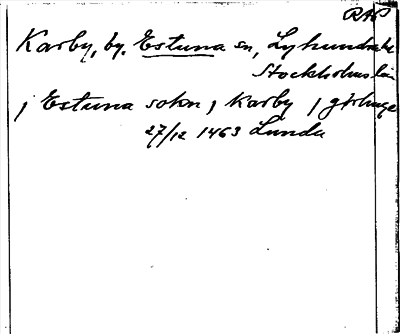 RAP
Karby, by. Estuna sn, Lyhundra hd
Stockholms län
j Estuna sokn j Karby j
27/12 1463 Lunda